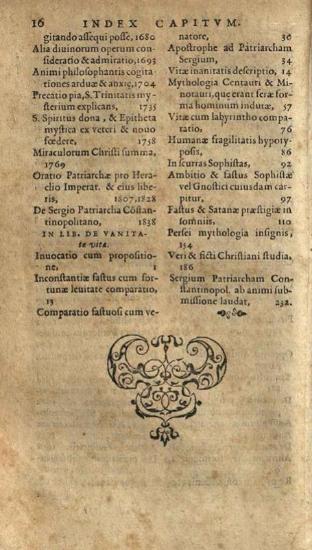 16 INDEX CAPITVM.
gitando assequi posse, 1680
Alia diuinorum operum con-
sideratio & admiratio, 1693
Animi philosophantis cogita-
tiones arduæ & anxiæ, 1704
Precatio pia, S. Trinitatis my-
sterium explicans, 1735
S. Spiritus dona, & Epitheta
mystica ex veteri & nouo
fœdere, 1758
Miraculorum Christi summa,
1769
Oratio Patriarchæ pro Hera-
clio Imperat. & eius libe-
ris, 1807, 1828
De Sergio Patriarcha Cõstan-
tinopolitano, 1838
IN LIB. DE VANITA-
te vitæ.
Inuocatio cum propositio-
ne, 1
Inconstantiæ fastus cum for-
tunæ leuitate comparatio,
13
Comparatio fastuosi cum ve-
natore, 30
Apostrophe ad Patriarcham
Sergium, 34
Vitæ inanitatis descriptio, 14
Mythologia Centauri & Mi-
notauri, que erant feræ for-
ma hominum indutæ, 57
Vitæ cum labyrintho compa-
ratio, 76
Humanæ fragilitatis hypoty-
posis, 86
In scurras Sophistas, 92
Ambitio & fastus Sophistæ
vel Gnostici cuiusdam car-
pitur, 97
Fastus & Satanæ præstigiæ in
somniis, 110
Persei mythologia insignis,
154
Veri & ficti Christiani studia,
186
Sergium Patriarcham Con-
stantinopol. ab animi sub-
missione laudat, 232.